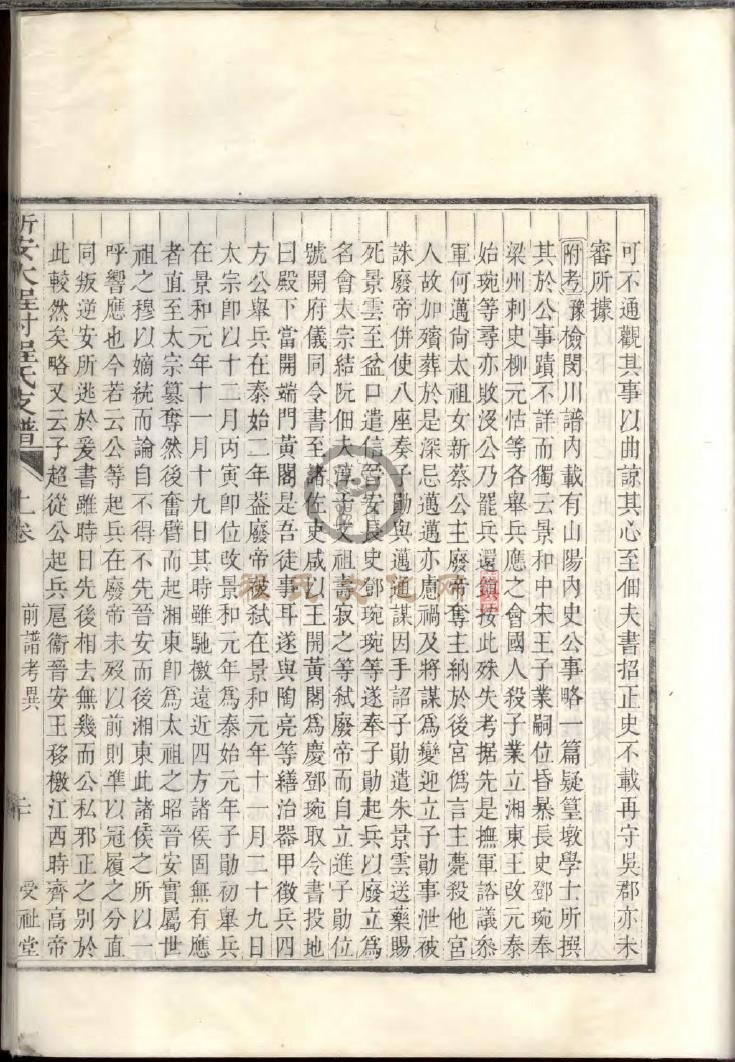 可不通觀其事以曲諒其心至佃夫書招正史不載再守吳郡亦未
審所據
附考豫檢閔川譜內載有山陽內史公事略一篇疑篁墩學士所撰
其於公事蹟不詳而獨云景和中宋王子業嗣位昏暴長史鄧琬奉
梁州刺史柳元怙等各舉兵應之會國人殺子業立湘東王改元泰
始琬等尋亦敗沒公乃罷兵還鎮按此殊失考据先是撫軍諮議叅
軍何邁尚太祖女新蔡公主廢帝奪主納於後宮僞言主薨殺他宮
人故加殯葬於是深忌邁邁亦慮禍及將謀爲變迎立子勛事泄被
誅廢帝併使八座奏子勛與邁通謀因手詔子勛遣朱景雲送藥賜
死景雲至盆口遣信晉安長史鄧琬琬等遂奉子勛起兵以廢立爲
名會太宗結阮佃夫淳于文祖壽寂之等弒廢帝而自立進子勛位
號開府儀同令書至諸佐吏咸以王開黃閣爲慶鄧琬取令書投地
曰殿下當開端門黃閣是吾徒事耳遂與陶亮等繕治器甲徵兵四
方公舉兵在泰始二年葢廢帝被弒在景和元年十一月二十九日
太宗卽以十二月丙寅卽位改景和元年爲泰始元年子勛初舉兵
在景和元年十一月十九日其時雖馳檄遠近四方諸侯固無有應
者直至太宗篡奪然後奮臂而起湘東卽爲太祖之昭晉安實屬世
祖之穆以嫡統而論自不得不先晉安而後湘東此諸侯之所以一
呼響應也今若云公等起兵在廢帝未歿以前則準以冠履之分直
同叛逆安所逃於爰書雖時日先後相去無幾而公私邪正之別於
此較然矣略又云子超從公起兵扈衞晉安王移檄江西時齊高帝
新安大程村程氏支譜 上卷 前譜考異 受祉堂